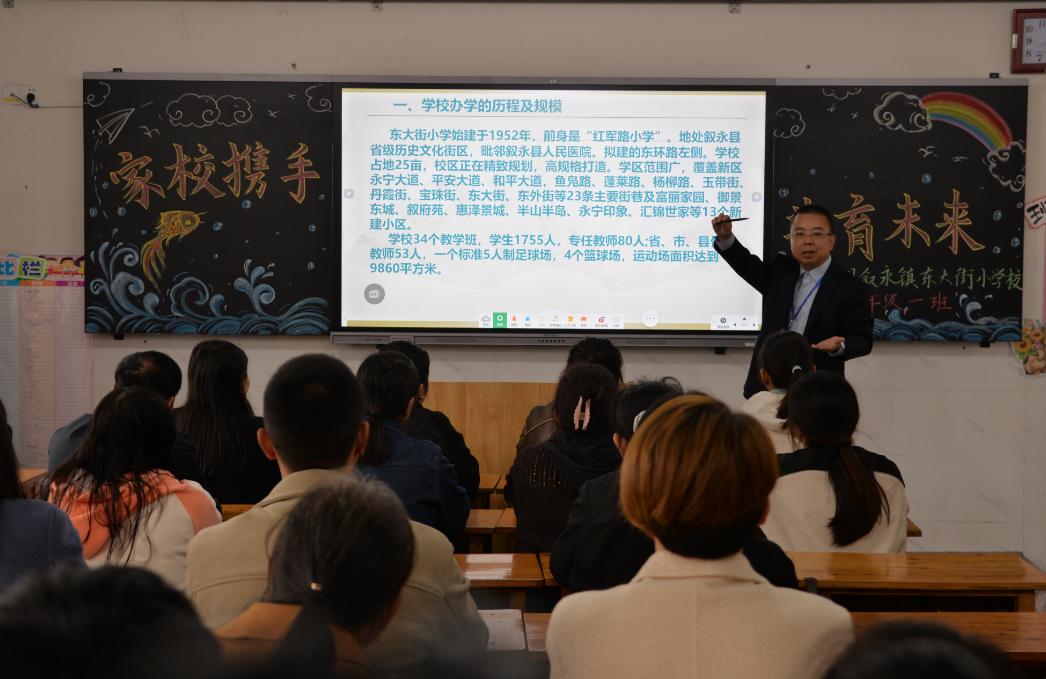 一、学校办学的历程及规模
东大街小学始建于1952年，前身是“红军路小学”。地处叙永县
省级历史文化街区，毗邻叙永县人民医院、拟建的东环路左侧。学校
占地25亩，校区正在精致规划，高规格打造。学区范围广，覆盖新区
永宁大道、平安大道、和平大道，鱼凫路、蓬莱路、杨柳路、玉带街、
丹霞街、宝珠街、东大街、东外街等23条主要街巷及富丽家园、御景
东城、叙府苑、惠泽景城、半山半岛、永宁印象、汇锦世家等13个新
建小区。
学校34个教学班，学生1755人，专任教师80人;省、市、县
教师53人，一个标准5人制足球场，4个篮球场，运动场面积达到
9860平方米。
家校携手
育未来
叙永镇东大街小学校
年级一班
比栏